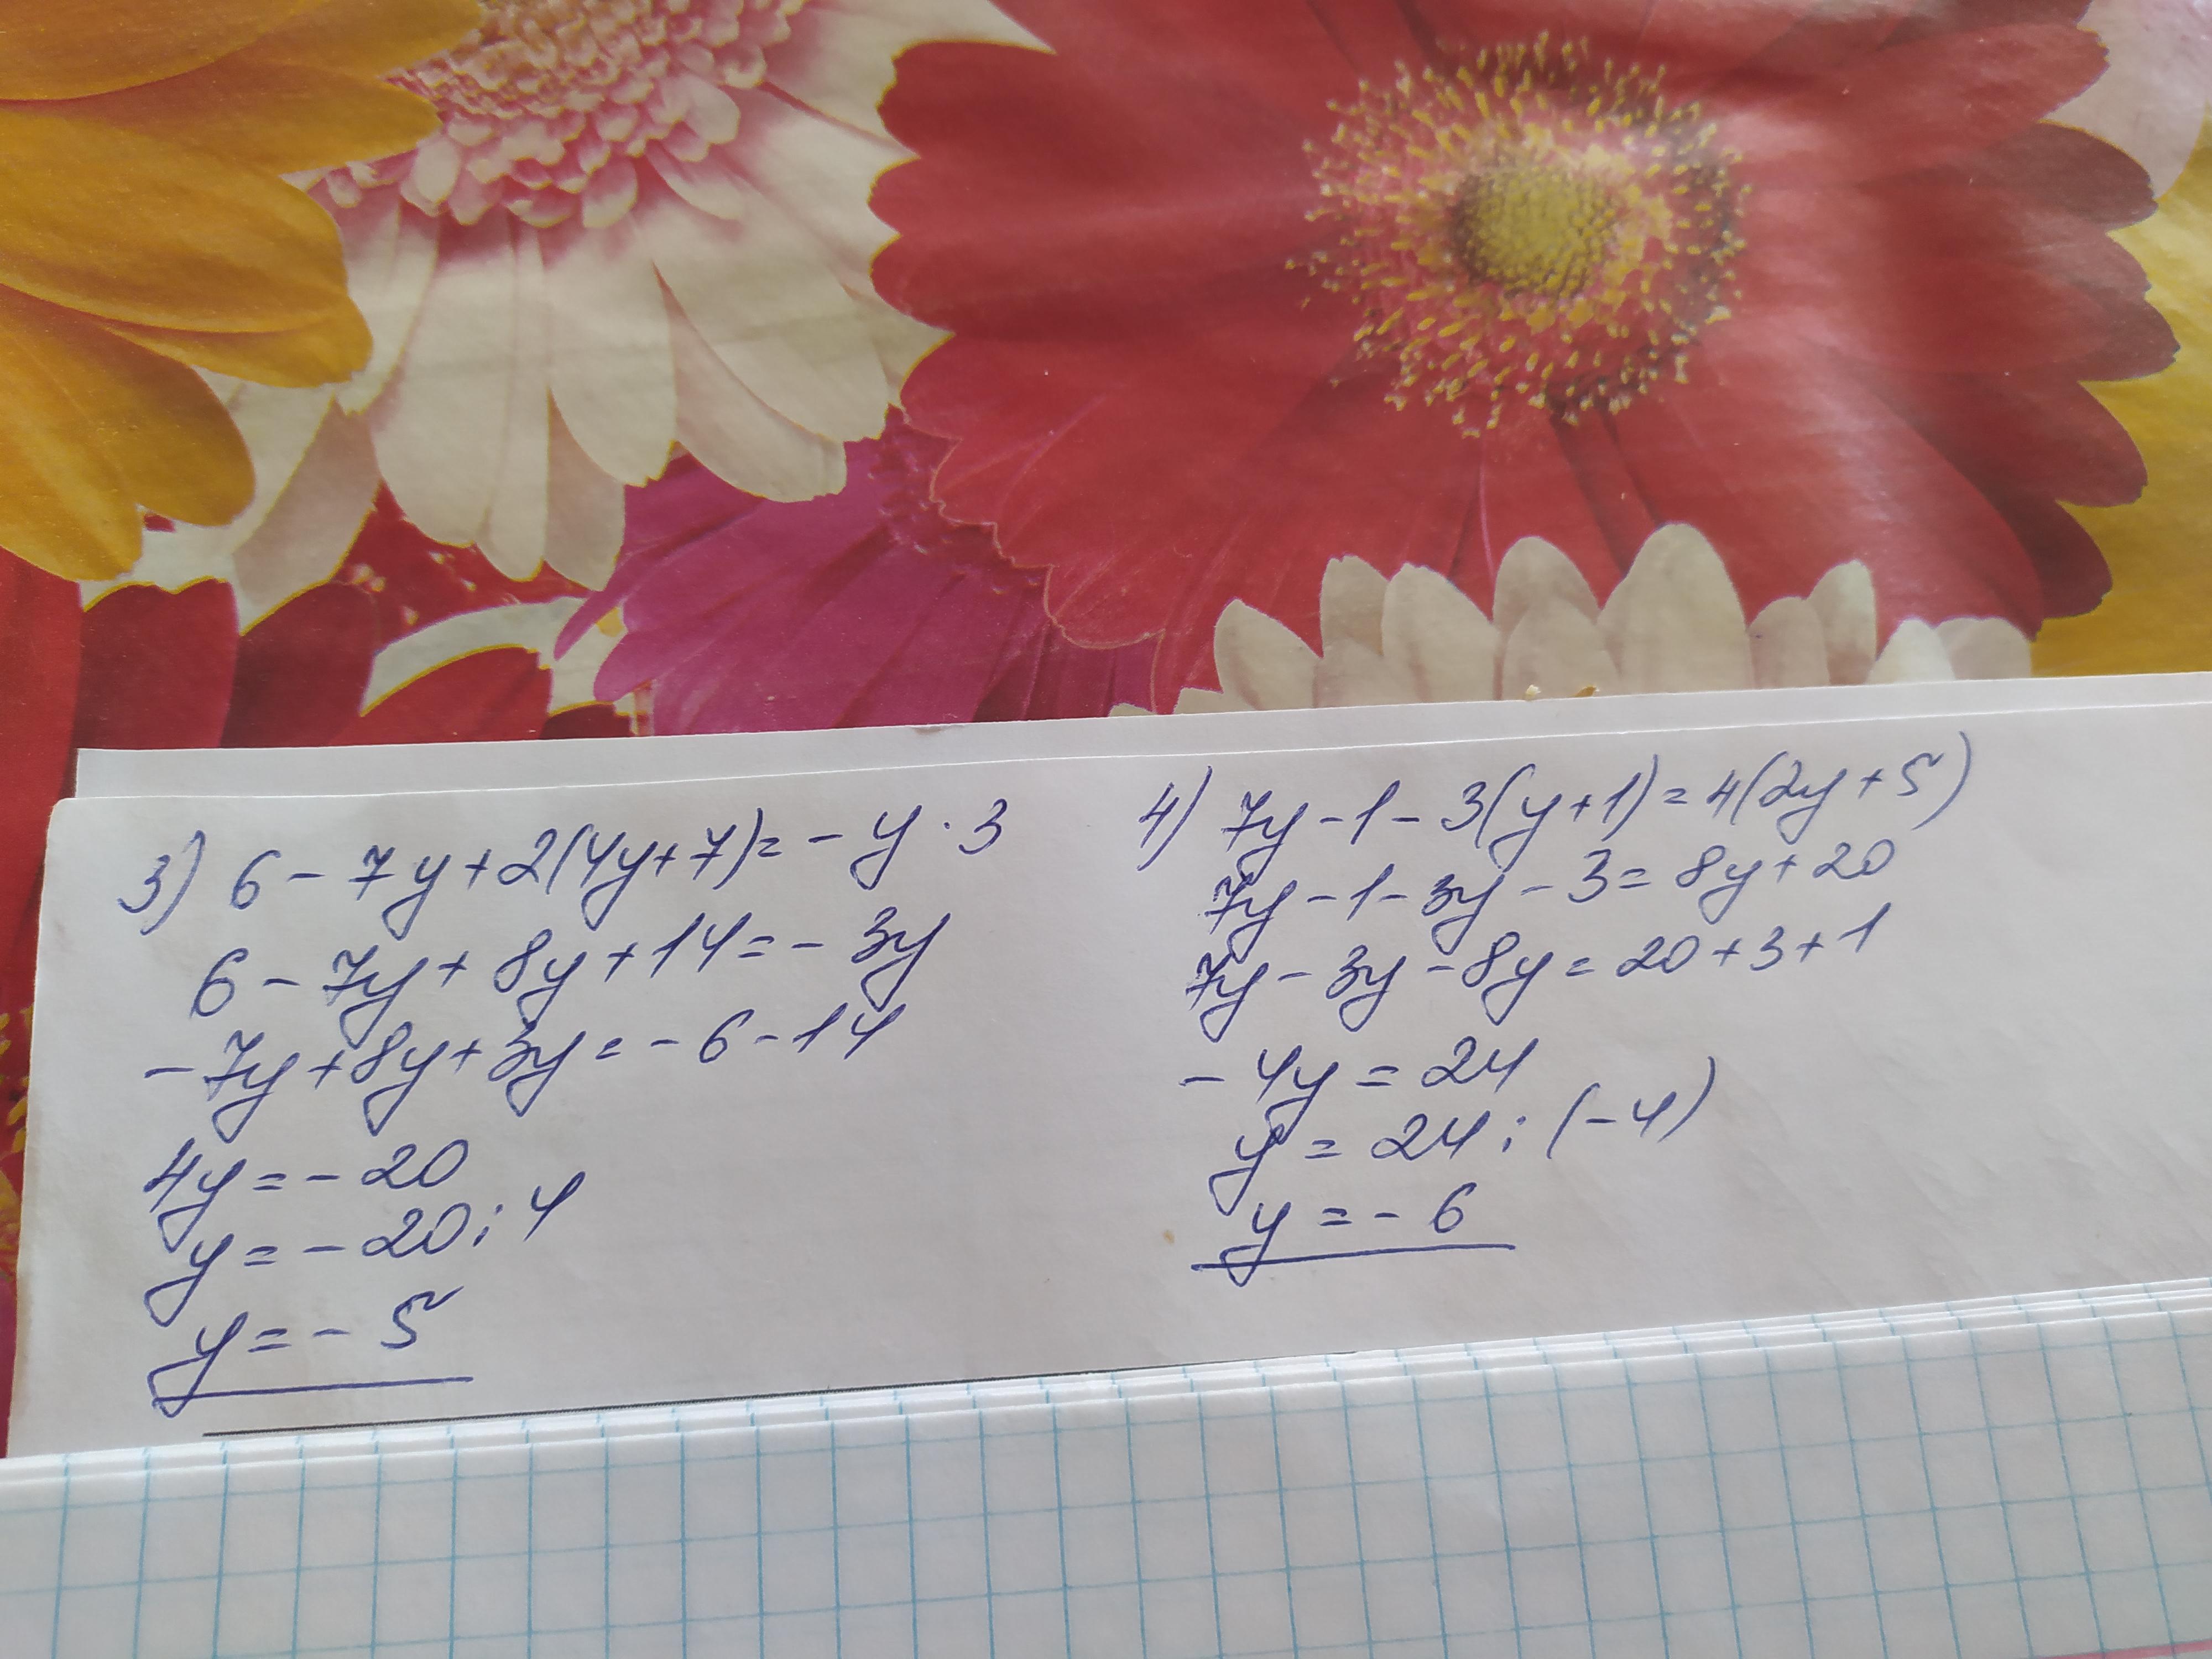 3) 6 - 7y + 2(4y + 7) = - y · 3
6 - 7y + 8y + 14 = - 3y
- 7y + 8y + 3y = - 6 - 14
4y = - 20
y = - 20 : 4
y = - 5
4) 7y - 1 - 3(y + 1) = 4(2y + 5)
7y - 1 - 3y - 3 = 8y + 20
7y - 3y - 8y = 20 + 3 + 1
- 4y = 24
y = 24 : (- 4)
y = - 6